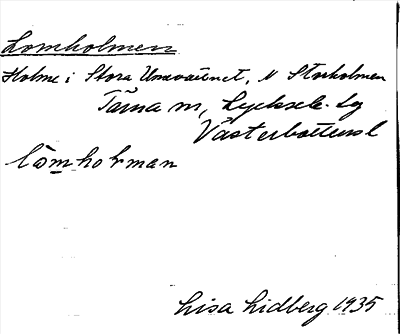 Lomholmen
Holme i Stora Umevattnet, N Storholmen
Tärna sn, Lycksele lg
Västerbottens l
lòmhoḷman
Lisa Lidberg 1935